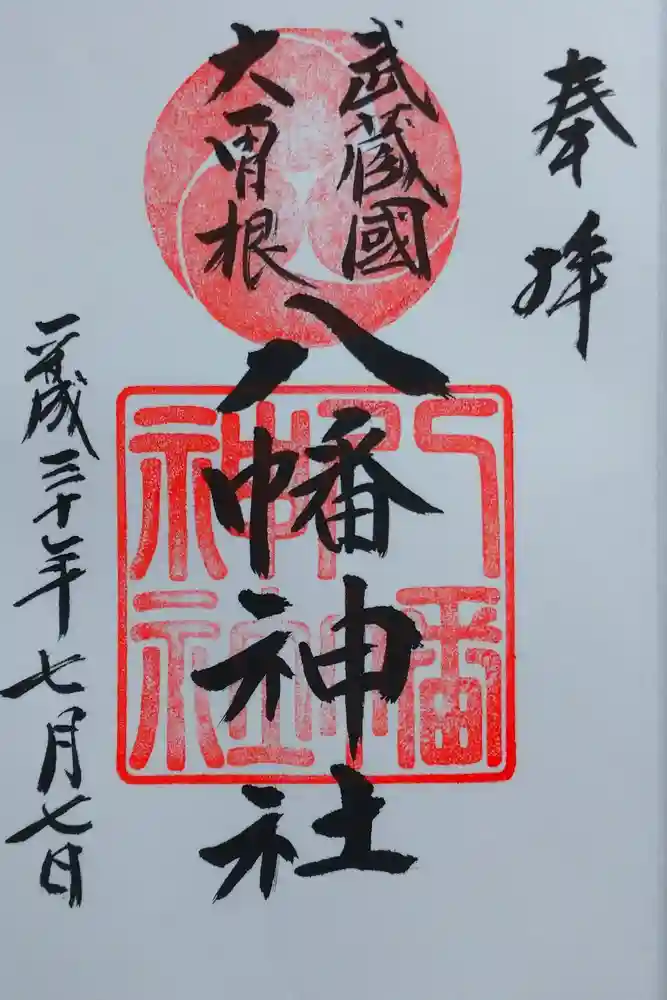 奉拝
武蔵國
大曽根
八幡神社
八幡神社
平成三十年七月七日